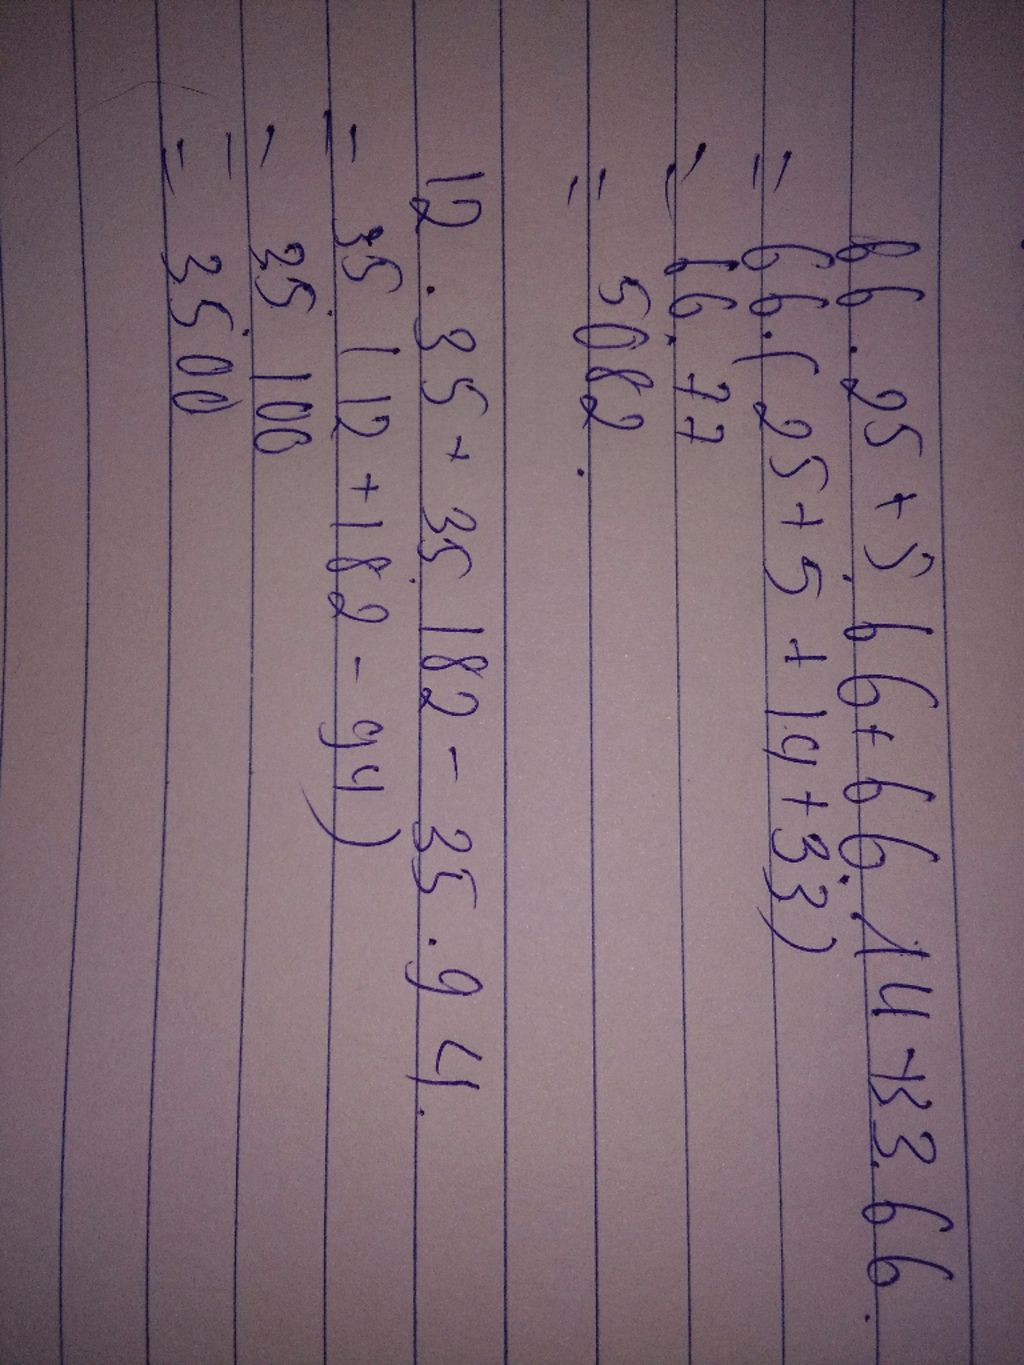 66 . 25 + 5 . 66 + 66 . 14 + 33 . 66 .
= 66 . ( 25 + 5 + 14 + 33 )
= 66 . 77
= 5082 .
12 . 35 + 35 . 182 - 35 . 94 .
= 35 ( 12 + 182 - 94 )
= 35 . 100
= 3500